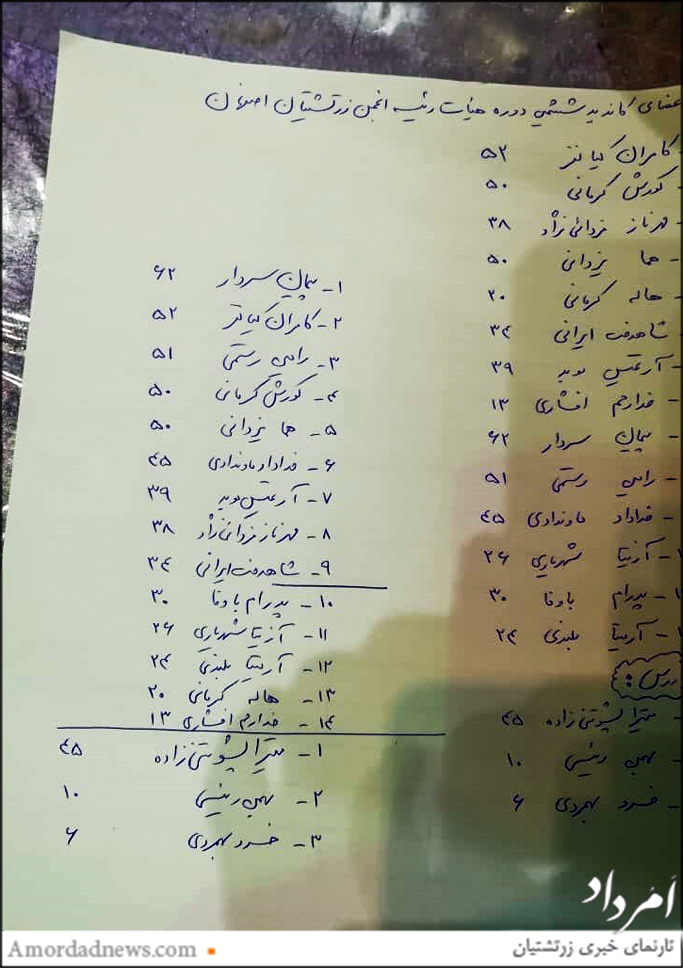 عضای کاندید ششمین دوره هیات رئیسه انجمن زرتشتیان اصفهان
- کامران کیانفر ۵۲
- کورش کرمانی ۵۰
- مهرناز یزدانی نژاد ۳۸
- هما یزدانی ۵۰
- هاله کرمانی ۲۰
- شاهدخت ایرانی ۳۴
- آرتمیس نوید ۳۹
- خدارحم افشاری ۱۳
- پیمان سردار ۶۲
- رامین رستمی ۵۱
- خداداد ماوندادی ۴۵
- آزیتا شهریاری ۲۶
- پدرام باوفا ۳۰
- آرمیتا بلندی ۲۴
بازرس :
- میترا پشوتنی‌زاده ۴۵
- بهمن رئیسی ۱۰
- خسرو بهمردی ۶
۱- پیمان سردار ۶۲
۲- کامران کیانفر ۵۲
۳- رامین رستمی ۵۱
۴- کورش کرمانی ۵۰
۵- هما یزدانی ۵۰
۶- خداداد ماوندادی ۴۵
۷- آرتمیس نوید ۳۹
۸- مهرناز یزدانی نژاد ۳۸
۹- شاهدخت ایرانی ۳۴
۱۰- پدرام باوفا ۳۰
۱۱- آزیتا شهریاری ۲۶
۱۲- آرمیتا بلندی ۲۴
۱۳- هاله کرمانی ۲۰
۱۴- خدارحم افشاری ۱۳
۱- میترا پشوتنی‌زاده ۴۵
۲- بهمن رئیسی ۱۰
۳- خسرو بهمردی ۶
اَمُرداد
تارنمای خبری زرتشتیان
Amordadnews.com